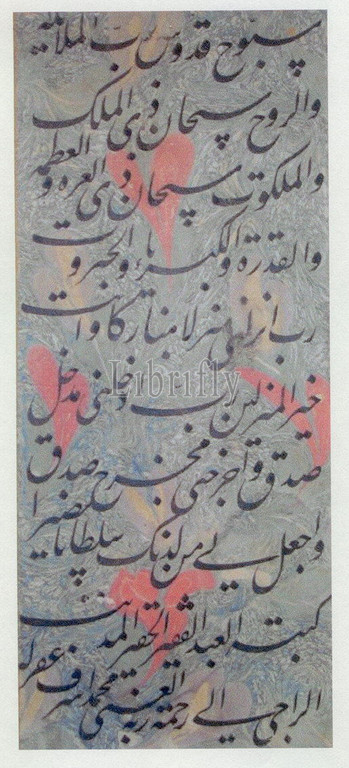 سبوح قدوس رب الملایکة
والروح سبحان ذی الملک
والملکوت سبحان ذی العزة و العظمة
والقدرة والکبریاء والجبروت
رب انزلنی منزلا مبارکا وانت
خیر المنزلین رب ادخلنی مدخل
صدق واخرجنی مخرج صدق
واجعل لی من لدنک سلطانا نصیرا
کتبه العبد الفقیر الحقیر المذنب
الراجی الی رحمة ربه الغنی محمد اشرف غفر له
Librifly